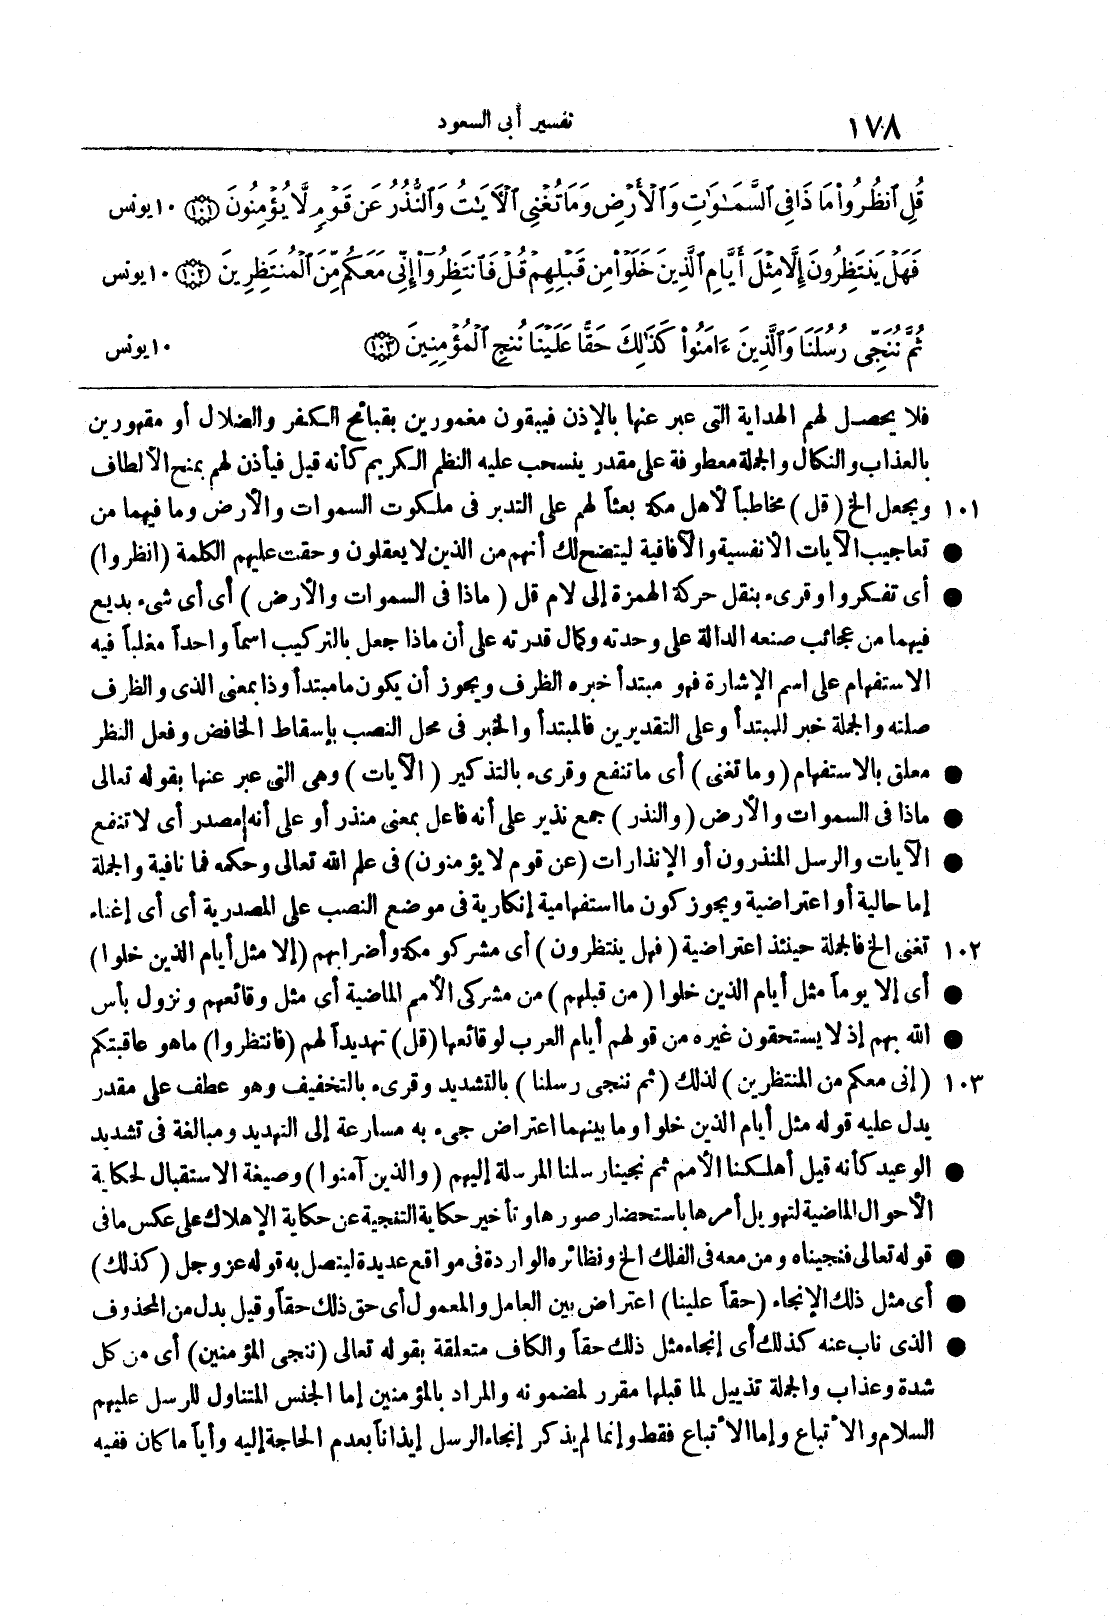 ١٧٨ تفسير أبى السعود
قُلِ ٱنظُرُوا۟ مَاذَا فِى ٱلسَّمَـٰوَٰتِ وَٱلْأَرْضِ وَمَا تُغْنِى ٱلْـَٔايَـٰتُ وَٱلنُّذُرُ عَن قَوْمٍ لَّا يُؤْمِنُونَ ١٠١ ١٠ يونس
فَهَلْ يَنتَظِرُونَ إِلَّا مِثْلَ أَيَّامِ ٱلَّذِينَ خَلَوْا۟ مِن قَبْلِهِمْ قُلْ فَٱنتَظِرُوٓا۟ إِنِّى مَعَكُم مِّنَ ٱلْمُنتَظِرِينَ ١٠٢ ١٠ يونس
ثُمَّ نُنَجِّى رُسُلَنَا وَٱلَّذِينَ ءَامَنُوا۟ كَذَٰلِكَ حَقًّا عَلَيْنَا نُنجِ ٱلْمُؤْمِنِينَ ١٠٣ ١٠ يونس
فلا يحصل لهم الهداية التى عبر عنها بالإذن فيبقون مغمورين بقبائح الكفر والضلال أو مقهورين
بالعذاب والنكال والجملة معطوفة على مقدر ينسحب عليه النظم الكريم كأنه قيل فيأذن لهم بمنح الألطاف
١٠١ ويجعل الخ (قل) مخاطباً لأهل مكة بعثاً لهم على التدبر فى ملكوت السموات والأرض وما فيهما من
● تعاجيب الآيات الأنفسية والآفاقية ليتضح لك أنهم من الذين لا يعقلون وحقت عليهم الكلمة (انظروا)
● أى تفكروا وقرىء بنقل حركة الهمزة إلى لام قل (ماذا فى السموات والأرض) أى أى شىء بديع
فيهما من عجائب صنعه الدالة على وحدته وكمال قدرته على أن ماذا جعل بالتركيب اسماً واحداً مغلباً فيه
الاستفهام على اسم الإشارة فهو مبتدأ خبره الظرف ويجوز أن يكون ما مبتدأ وذا بمعنى الذى والظرف
صلته والجملة خبر للمبتدأ وعلى التقديرين فالمبتدأ والخبر فى محل النصب بإسقاط الخافض وفعل النظر
● معلق بالاستفهام (وما تغنى) أى ما تنفع وقرىء بالتذكير (الآيات) وهى التى عبر عنها بقوله تعالى
● ماذا فى السموات والأرض (والنذر) جمع نذير على أنه فاعل بمعنى منذر أو على أنه مصدر أى لا تنفع
● الآيات والرسل المنذرون أو الإنذارات (عن قوم لا يؤمنون) فى علم الله تعالى وحكمه فما نافية والجملة
إما حالية أو اعتراضية ويجوز كون ما استفهامية إنكارية فى موضع النصب على المصدرية أى أى إغناء
١٠٢ تغنى الخ فالجملة حينئذ اعتراضية (فهل ينتظرون) أى مشركو مكة وأضرابهم (إلا مثل أيام الذين خلوا)
● أى إلا يوماً مثل أيام الذين خلوا (من قبلهم) من مشركى الأمم الماضية أى مثل وقائعهم ونزول بأس
● الله بهم إذ لا يستحقون غيره من قولهم أيام العرب لوقائعها (قل) تهديداً لهم (فانتظروا) ما هو عاقبتكم
١٠٣ (إنى معكم من المنتظرين) لذلك (ثم ننجى رسلنا) بالتشديد وقرىء بالتخفيف وهو عطف على مقدر
يدل عليه قوله مثل أيام الذين خلوا وما بينهما اعتراض جىء به مسارعة إلى التهديد ومبالغة فى تشديد
● الوعيد كأنه قيل أهلكنا الأمم ثم نجينا رسلنا المرسلة إليهم (والذين آمنوا) وصيغة الاستقبال لحكاية
الأحوال الماضية لتهويل أمرها باستحضار صورها وتأخير حكاية التنجية عن حكاية الإهلاك على عكس ما فى
● قوله تعالى فنجيناه ومن معه فى الفلك الخ ونظائره الواردة فى مواقع عديدة ليتصل به قوله عز وجل (كذلك)
● أى مثل ذلك الإنجاء (حقاً علينا) اعتراض بين العامل والمعمول أى حق ذلك حقاً وقيل بدل من المحذوف
● الذى ناب عنه كذلك أى إنجاء مثل ذلك حقاً والكاف متعلقة بقوله تعالى (ننجى المؤمنين) أى من كل
شدة وعذاب والجملة تذييل لما قبلها مقرر لمضمونه والمراد بالمؤمنين إما الجنس المتناول للرسل عليهم
السلام والأتباع وإما الأتباع فقط وإنما لم يذكر إنجاء الرسل إيذاناً بعدم الحاجة إليه وأياً ما كان ففيه